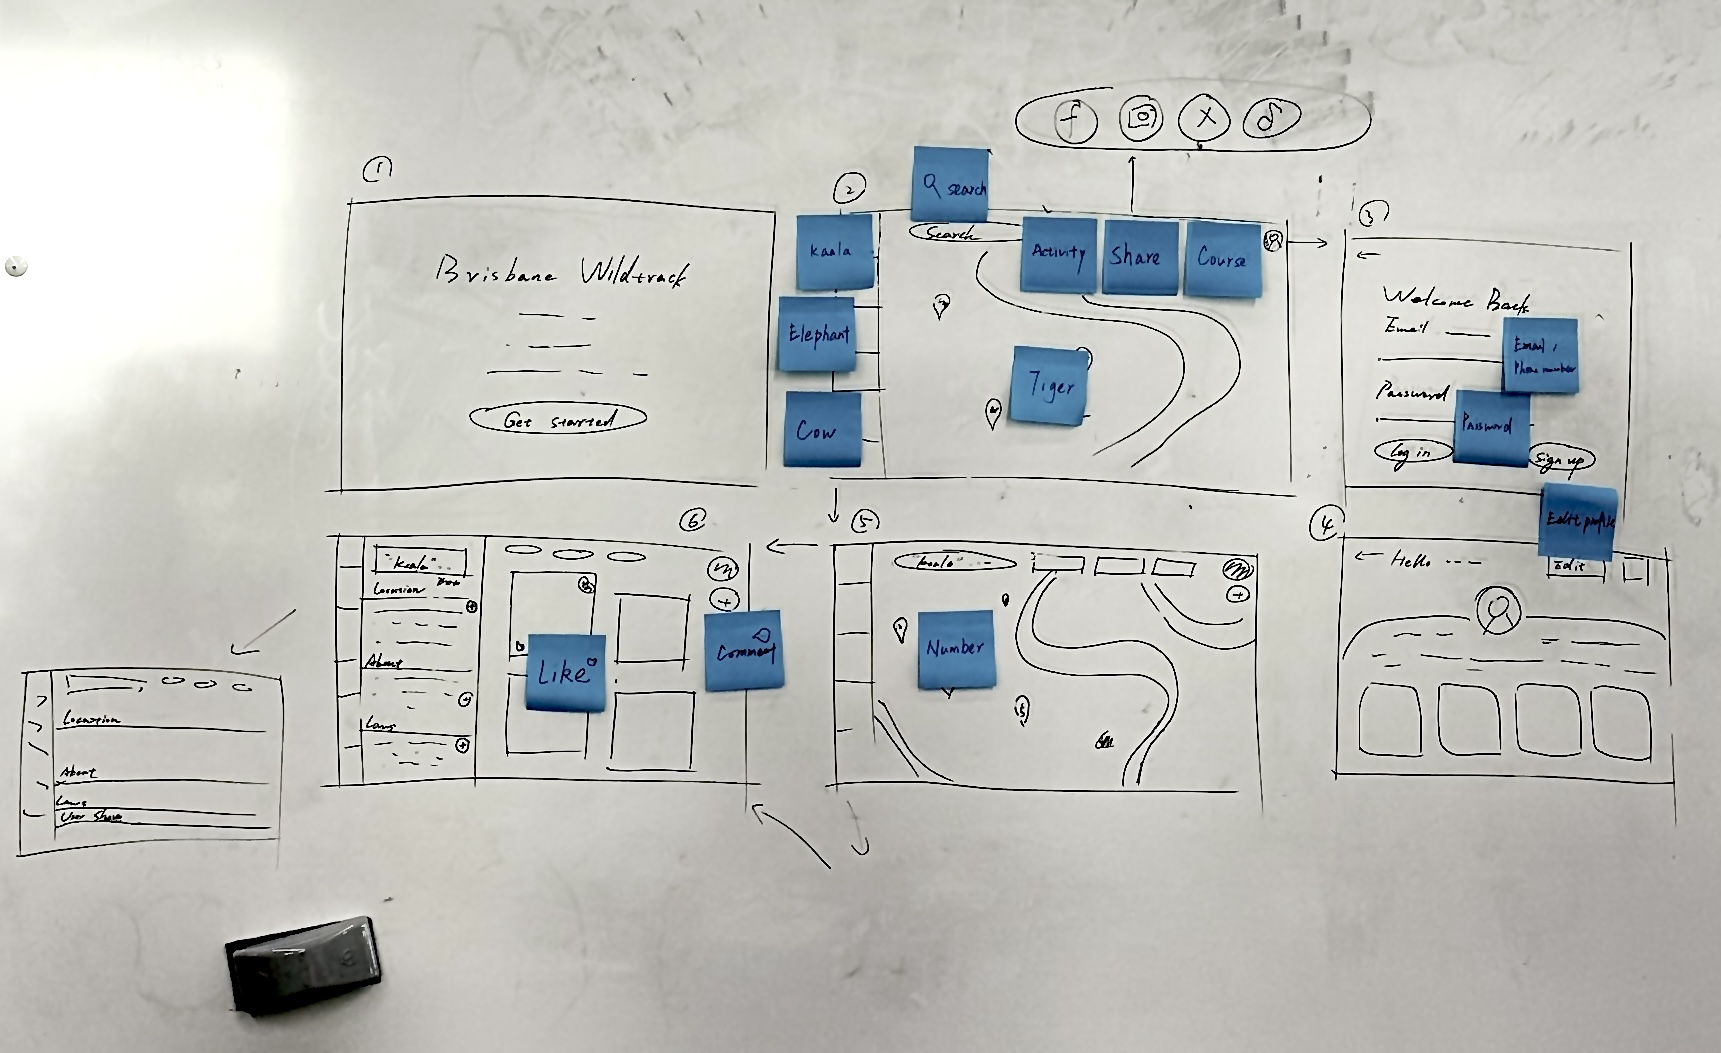 ①
Brisbane Wildtrack
Get started
②
Q search
Search
kaala
Elephant
Cow
Activity
Share
Course
Tiger
f
X
③
←
Welcome Back
Email
Email /
Phone number
Password
Password
Log in
Sign up
④
Edit profile
← Hello
Edit
⑤
"koala"
Number
⑥
"koala"
Location
About
Laws
Like
Comment
Location
About
Laws
User Share